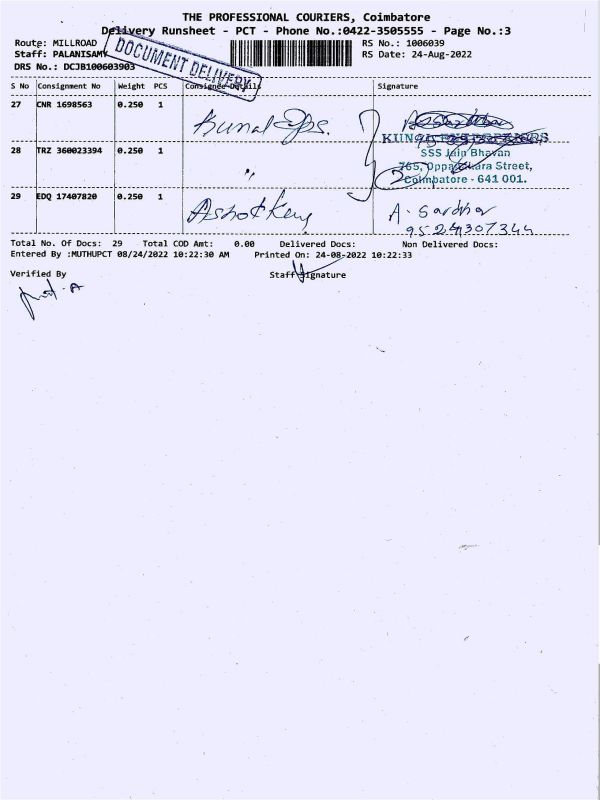 THE PROFESSIONAL COURIERS, Coimbatore
Delivery Runsheet - PCT - Phone No.:0422-3505555 - Page No.:3
Route: MILLROAD
RS No.: 1006039
Staff: PALANISAMY
RS Date: 24-Aug-2022
DRS No.: DCJB100603903
DOCUMENT DELIVERY
S No Consignment No Weight PCS Consignee Details Signature
27 CNR 1698563 0.250 1
Kunal
28 TRZ 360023394 0.250 1 〃
SSS Jain Bhavan
Street,
Coimbatore - 641 001.
29 EDQ 17407820 0.250 1 Ashok
A. Sardhar
Total No. Of Docs: 29 Total COD Amt: 0.00 Delivered Docs: Non Delivered Docs:
Entered By :MUTHUPCT 08/24/2022 10:22:30 AM Printed On: 24-08-2022 10:22:33
Verified By
Staff Signature